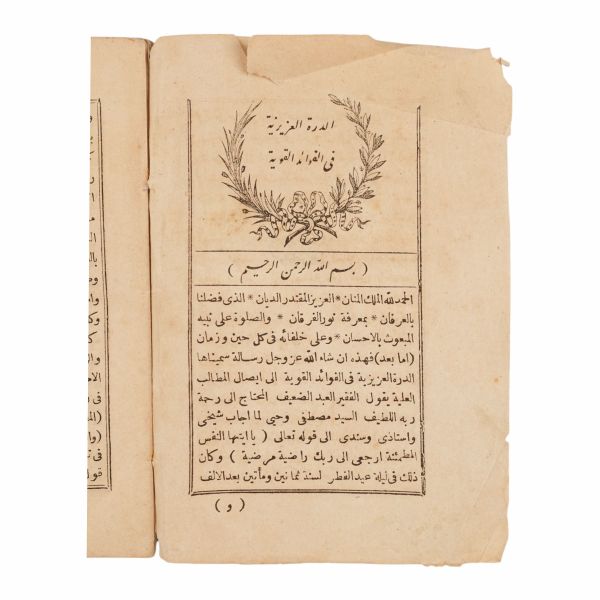 الدرة العزيزية
فى الفوائد القوية
( بسم الله الرحمن الرحيم )
الحمد لله الملك المنان * العزيز المقتدر الديان * الذى فضلنا
بالعرفان * بمعرفة نور الفرقان * والصلوة على نبيه
المبعوث بالاحسان * وعلى خلفائه فى كل حين وزمان
(اما بعد) فهذه ان شاء الله عز وجل رسالة سميتها
الدرة العزيزية فى الفوائد القوية الى ايصال المطالب
العلية يقول الفقير العبد الضعيف المحتاج الى رحمة
ربه اللطيف السيد مصطفى وحيى لما اجاب شيخى
واستاذى وسندى الى قوله تعالى ( يا ايتها النفس
المطمئنة ارجعى الى ربك راضية مرضية ) وكان
ذلك فى ليلة عيد الفطر لسنة ثمانين ومأتين بعد الالف
( و )